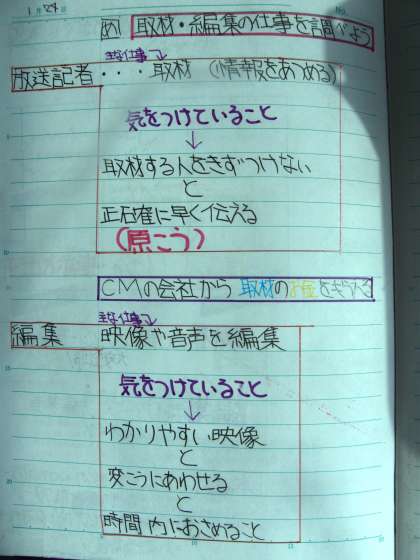 1月24日
め 取材・編集の仕事を調べよう
主な仕事
放送記者・・・取材（情報をあつめる）
気をつけていること
↓
取材する人をきずつけない
と
正確に早く伝える
（原こう）
CMの会社から 取材のお金をもらえる
主な仕事
編集 映像や音声を編集
気をつけていること
↓
わかりやすい映像
と
変こうにあわせる
と
時間内におさめること